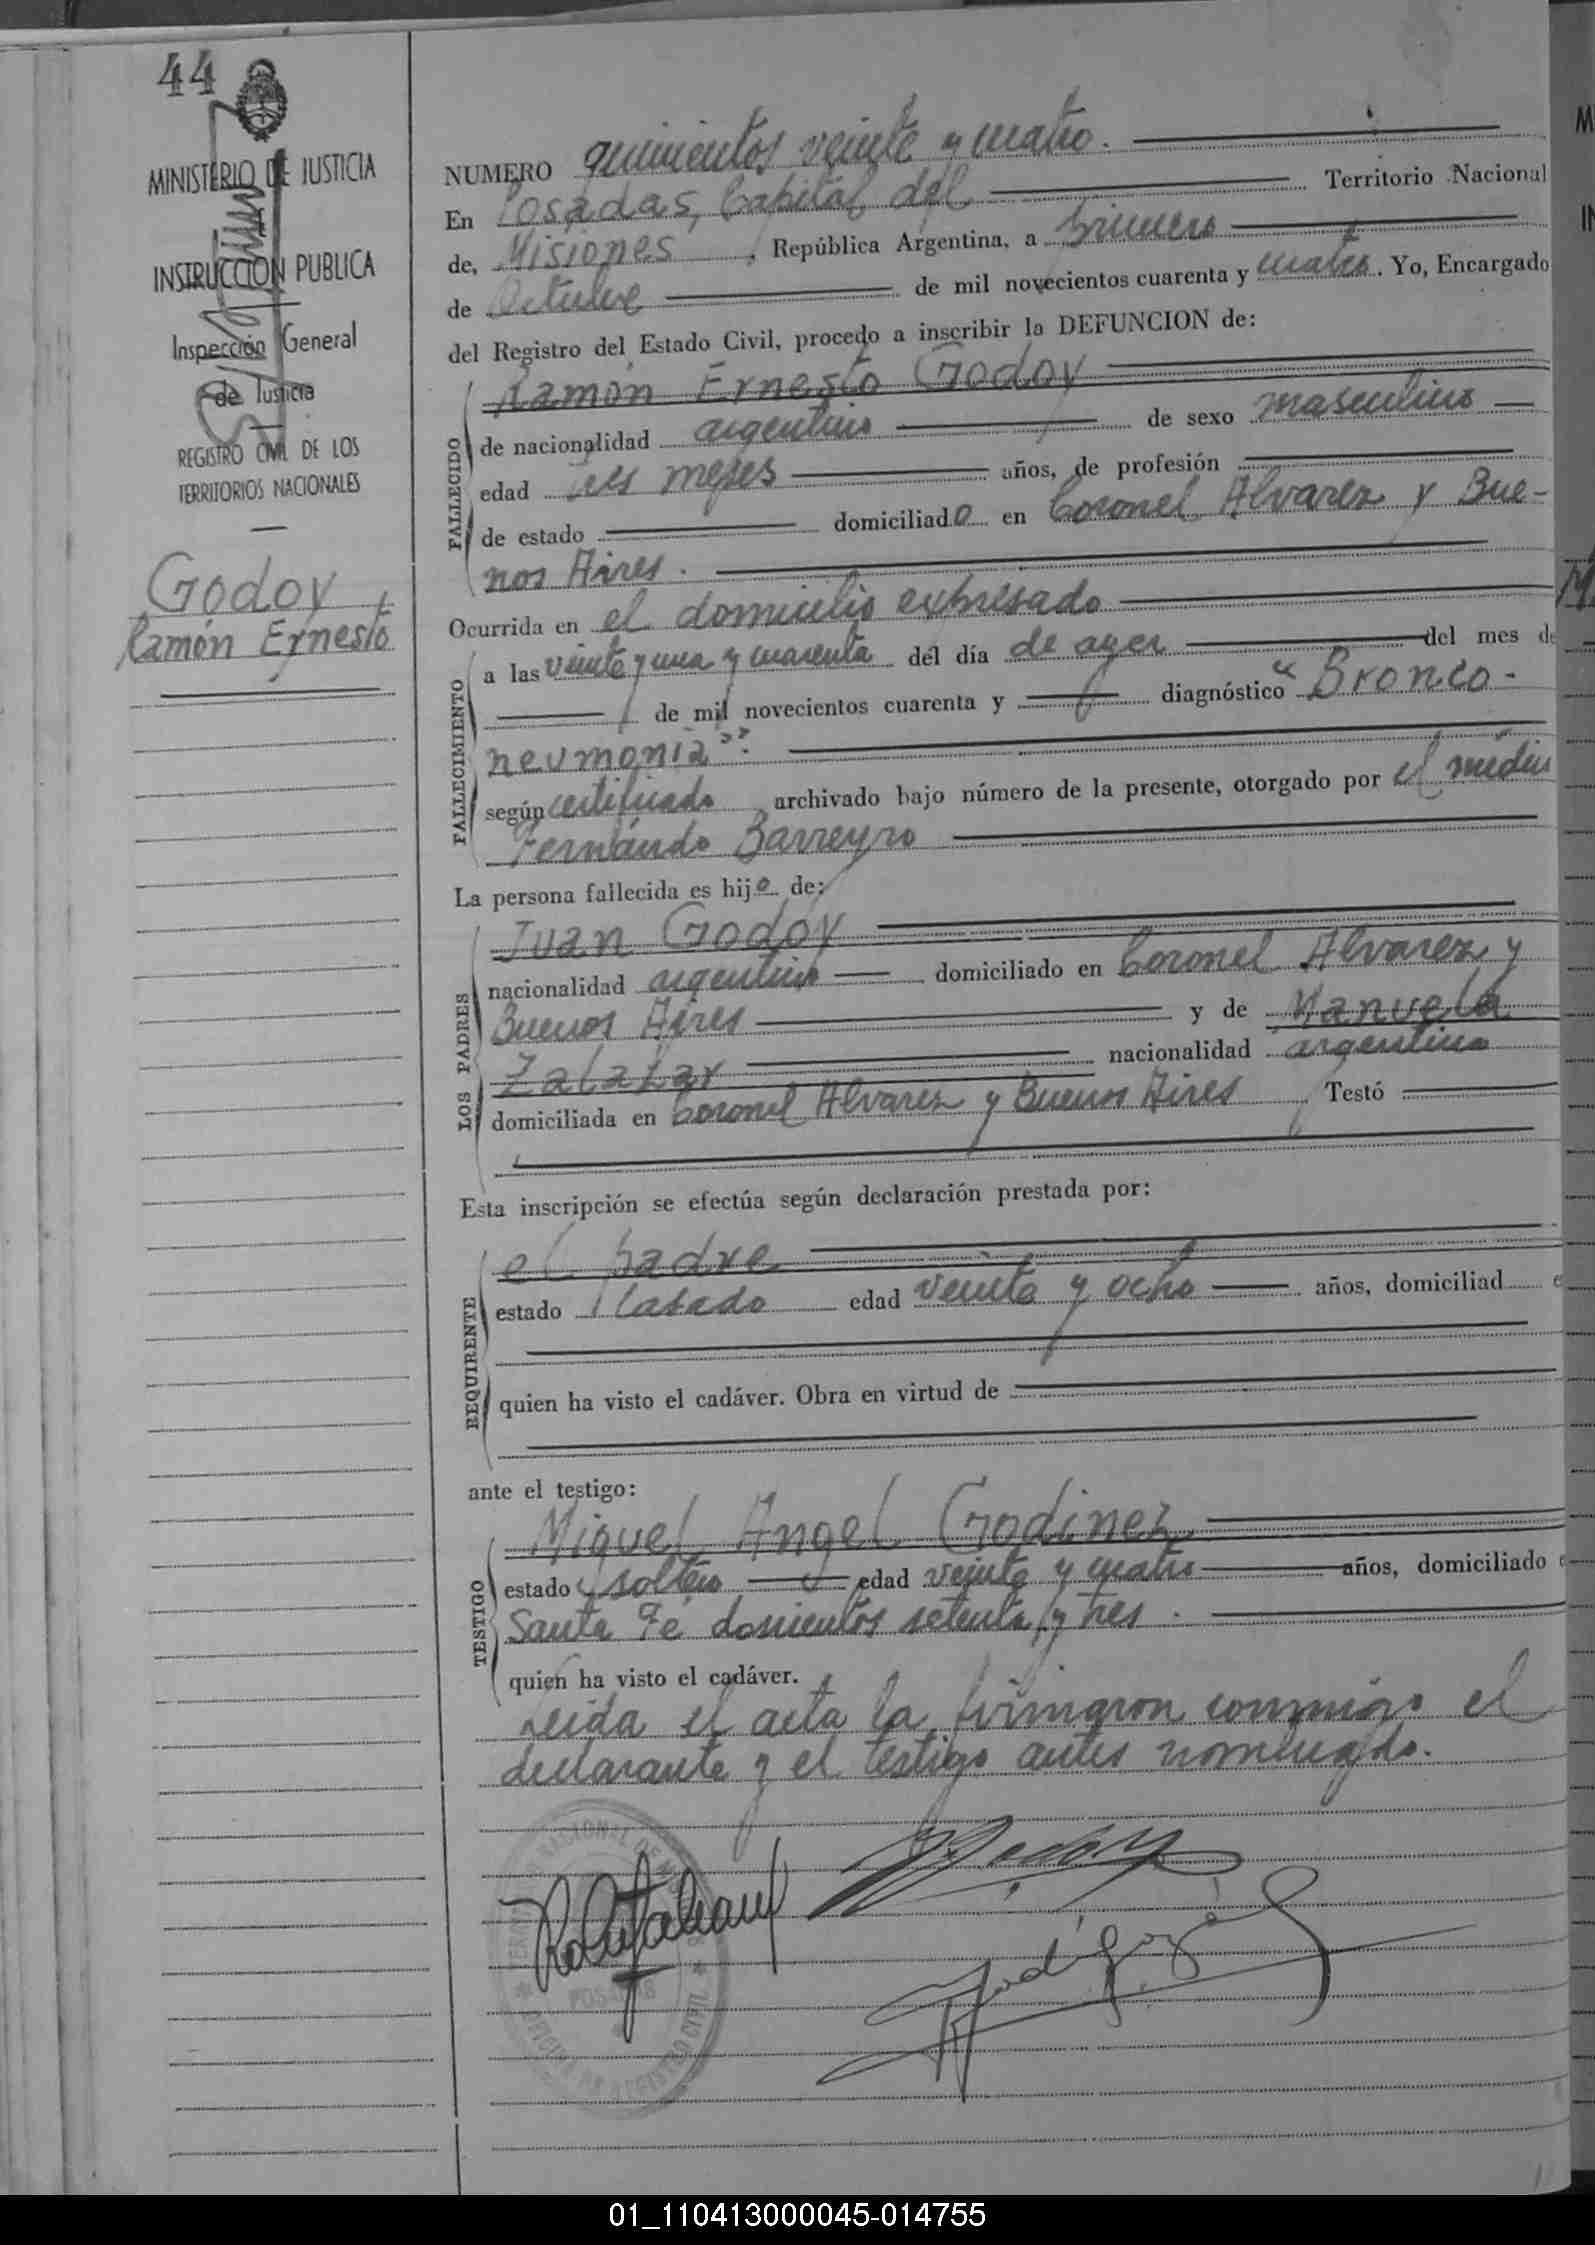 44
MINISTERIO DE JUSTICIA
INSTRUCCION PUBLICA
Inspección General
de Justicia
REGISTRO CIVIL DE LOS
TERRITORIOS NACIONALES
Godoy,
Ramón Ernesto
NUMERO quinientos veinte y cuatro.
En Posadas, Capital del Territorio Nacional
de, Misiones, República Argentina, a primero
de Octubre de mil novecientos cuarenta y cuatro. Yo, Encargado
del Registro del Estado Civil, procedo a inscribir la DEFUNCION de:
FALLECIDO
Ramón Ernesto Godoy
de nacionalidad argentino de sexo masculino
edad meses años, de profesión
de estado domiciliado en Coronel Alvarez y Bue-
nos Aires.
Ocurrida en el domicilio expresado
FALLECIMIENTO
a las veinte y una y cuarenta del día de ayer del mes de
de mil novecientos cuarenta y diagnóstico "Bronco-
neumonia".
según certificado archivado bajo número de la presente, otorgado por el médico
Fernando Barreyro
La persona fallecida es hijo de:
LOS PADRES
Juan Godoy
nacionalidad argentino domiciliado en Coronel Alvarez y
Buenos Aires y de Manuela
Zalazar nacionalidad argentina
domiciliada en Coronel Alvarez y Buenos Aires Testó
Esta inscripción se efectúa según declaración prestada por:
REQUIRENTE
el padre
estado casado edad veinte y ocho años, domiciliad e
quien ha visto el cadáver. Obra en virtud de
ante el testigo:
TESTIGO
Miguel Angel Godinez
estado soltero edad veinte y cuatro años, domiciliado e
Santa Fé doscientos setenta y tres.
quien ha visto el cadáver.
Leida el acta la firmaron conmigo el
declarante y el testigo antes nombrado.
POSADAS
REGISTRO CIVIL
01_110413000045-014755